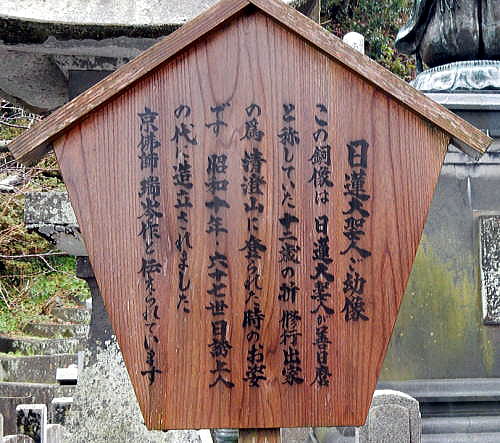 日蓮大聖人ご幼像
この銅像は 日蓮大聖人が善日麿
と称していた 十二歳の折 修行出家
の為 清澄山に登られた時のお姿
です 昭和十年・六十七世日諦上人
の代に造立されました
京佛師 瑞岑作と伝えられています